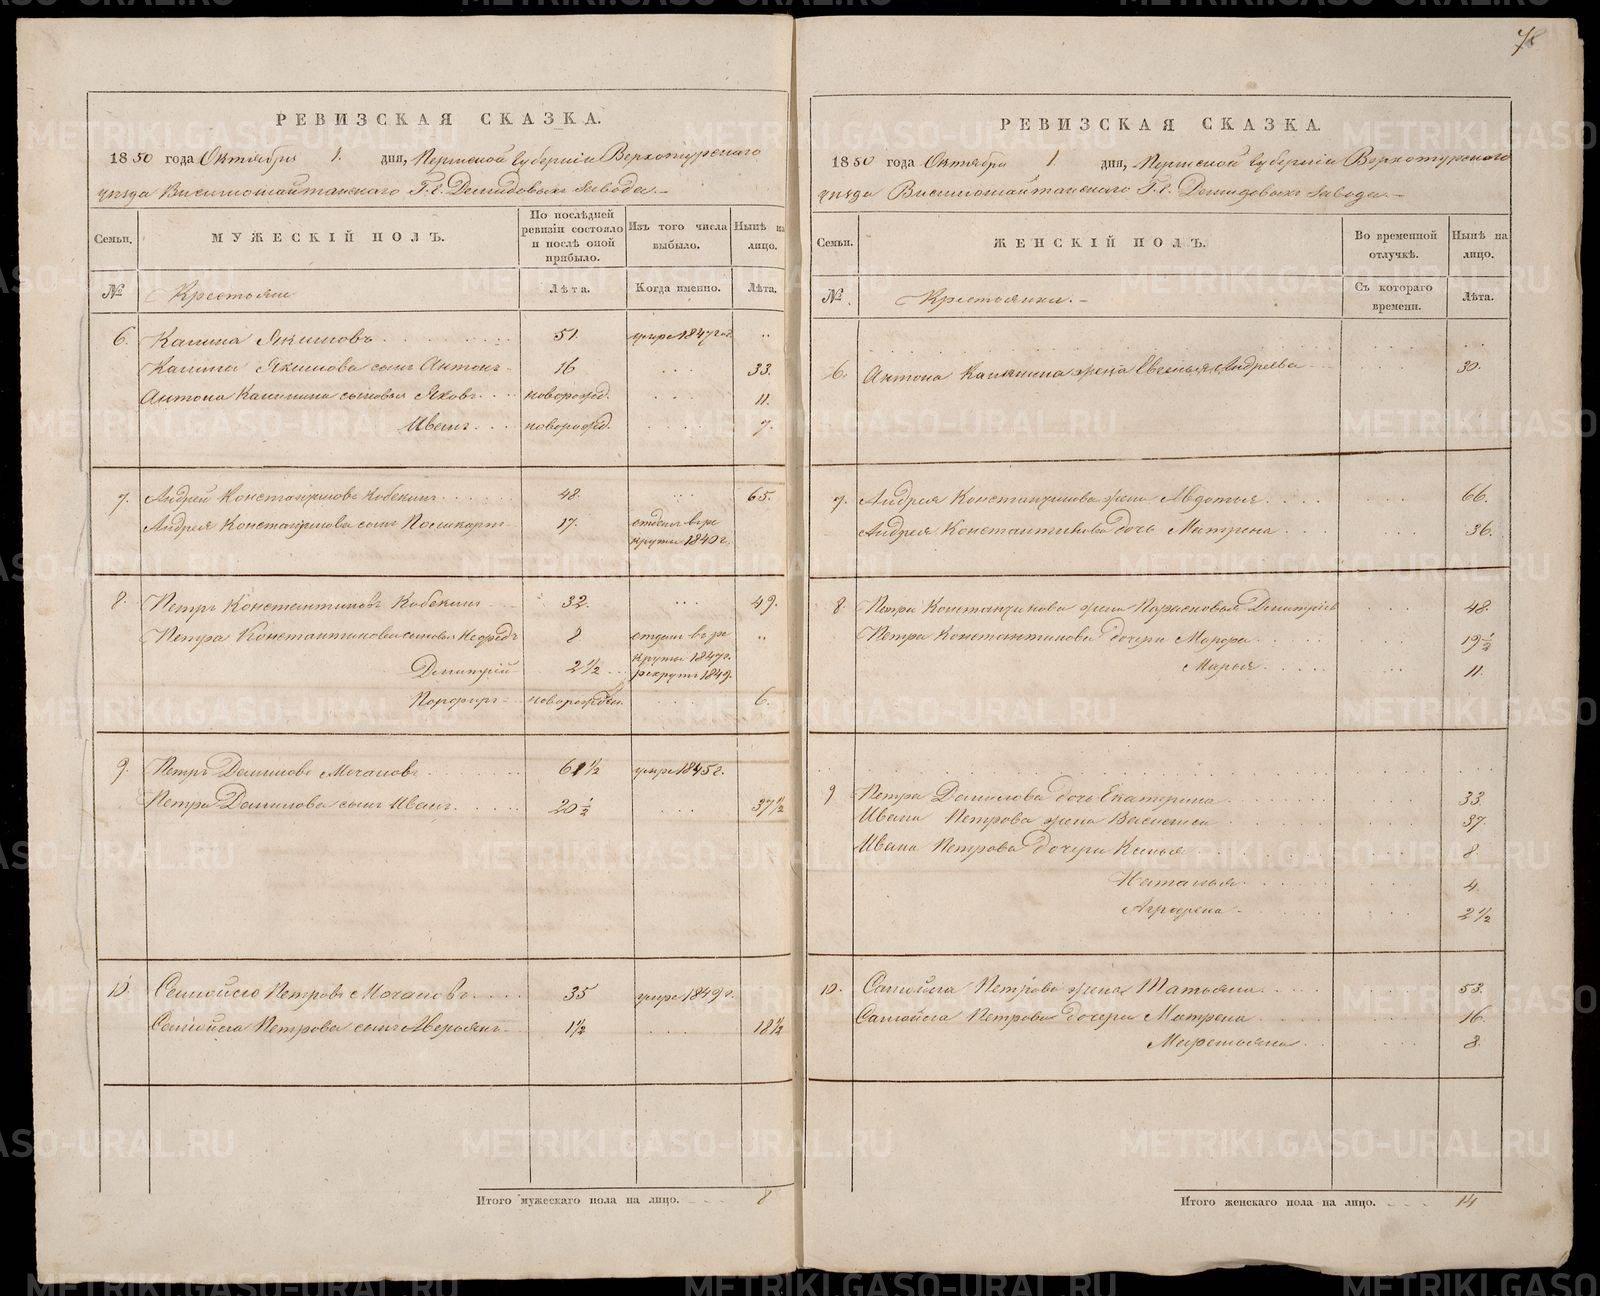 78
РЕВИЗСКАЯ СКАЗКА.
1850 года Октября 1. дня, Пермской губернии Верхотурскаго
уезда Висимошайтанскаго Г.г. Демидовых завода.
Семьи.
МУЖЕСКІЙ ПОЛЪ.
По послѣдней ревизіи состояло и послѣ оной прибыло.
Изъ того числа выбыло.
Нынѣ на лицо.
№
Крестьяне
Лѣта.
Когда именно.
Лѣта.
6. Калина Якимовъ 51. умре 1847 год
Калины Якимова сынъ Антонъ 16 33.
Антона Калинина сыновья Яковъ новорожд. 11.
Иванъ новорожд. 7.
7. Андрей Константиновъ Кобекинъ 48. 65
Андрея Константинова сынъ Поликарпъ 17. отданъ в ре
круты 1840 г.
8. Петръ Константиновъ Кобекинъ 32. 49.
Петра Константинова сыновья 8 отданъ в ре
круты 1847 г.
Дмитрій 2 1/2 рекруты 1849.
Порфиръ новорожден. 6.
9. Петръ Даниловъ Мочаловъ 61 1/2 умре 1845 г.
Петра Данилова сынъ Иванъ 20 1/2 37 1/2
10 Самойло Петровъ Мочаловъ 35 умре 1849 г.
Самойла Петрова сынъ Аверьянъ 1 1/2 18 1/2
Итого мужескаго пола на лицо. 8
РЕВИЗСКАЯ СКАЗКА.
1850 года Октября 1. дня, Пермской губернии Верхотурскаго
уезда Висимошайтанскаго Г.г. Демидовых завода.
Семьи.
ЖЕНСКІЙ ПОЛЪ.
Во временной отлучкѣ.
Нынѣ на лицо.
№
Крестьянки.
Съ котораго времени.
Лѣта.
6. Антона Калинина жена Евгенья Андреева 30.
7. Андрея Константинова жена Авдотья 66.
Андрея Константинова дочь Матрена 36.
8. Петра Константинова жена Парасковья Дмитріева 48.
Петра Константинова дочери Марфа 19 1/2
Марья 11.
9 Петра Данилова дочь Екатерина 33.
Ивана Петрова жена Василиса 37.
Ивана Петрова дочери 8.
Наталья 4.
Аграфена 2 1/2
10. Самойла Петрова жена Татьяна 53.
Самойла Петрова дочери Матрена 16.
8.
Итого женскаго пола на лицо. 14
METRIKI.GASO-URAL.RU